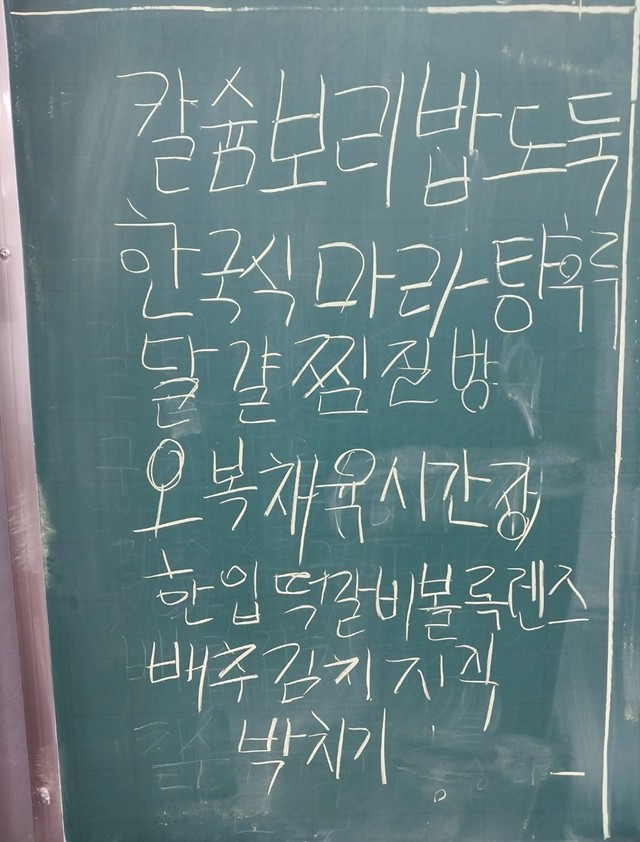 칼슘보리밥도둑
한국식마라탕후루
달걀찜질방
오복채육시간장
한입떡갈비볼록렌즈
배추김치지직
박치기